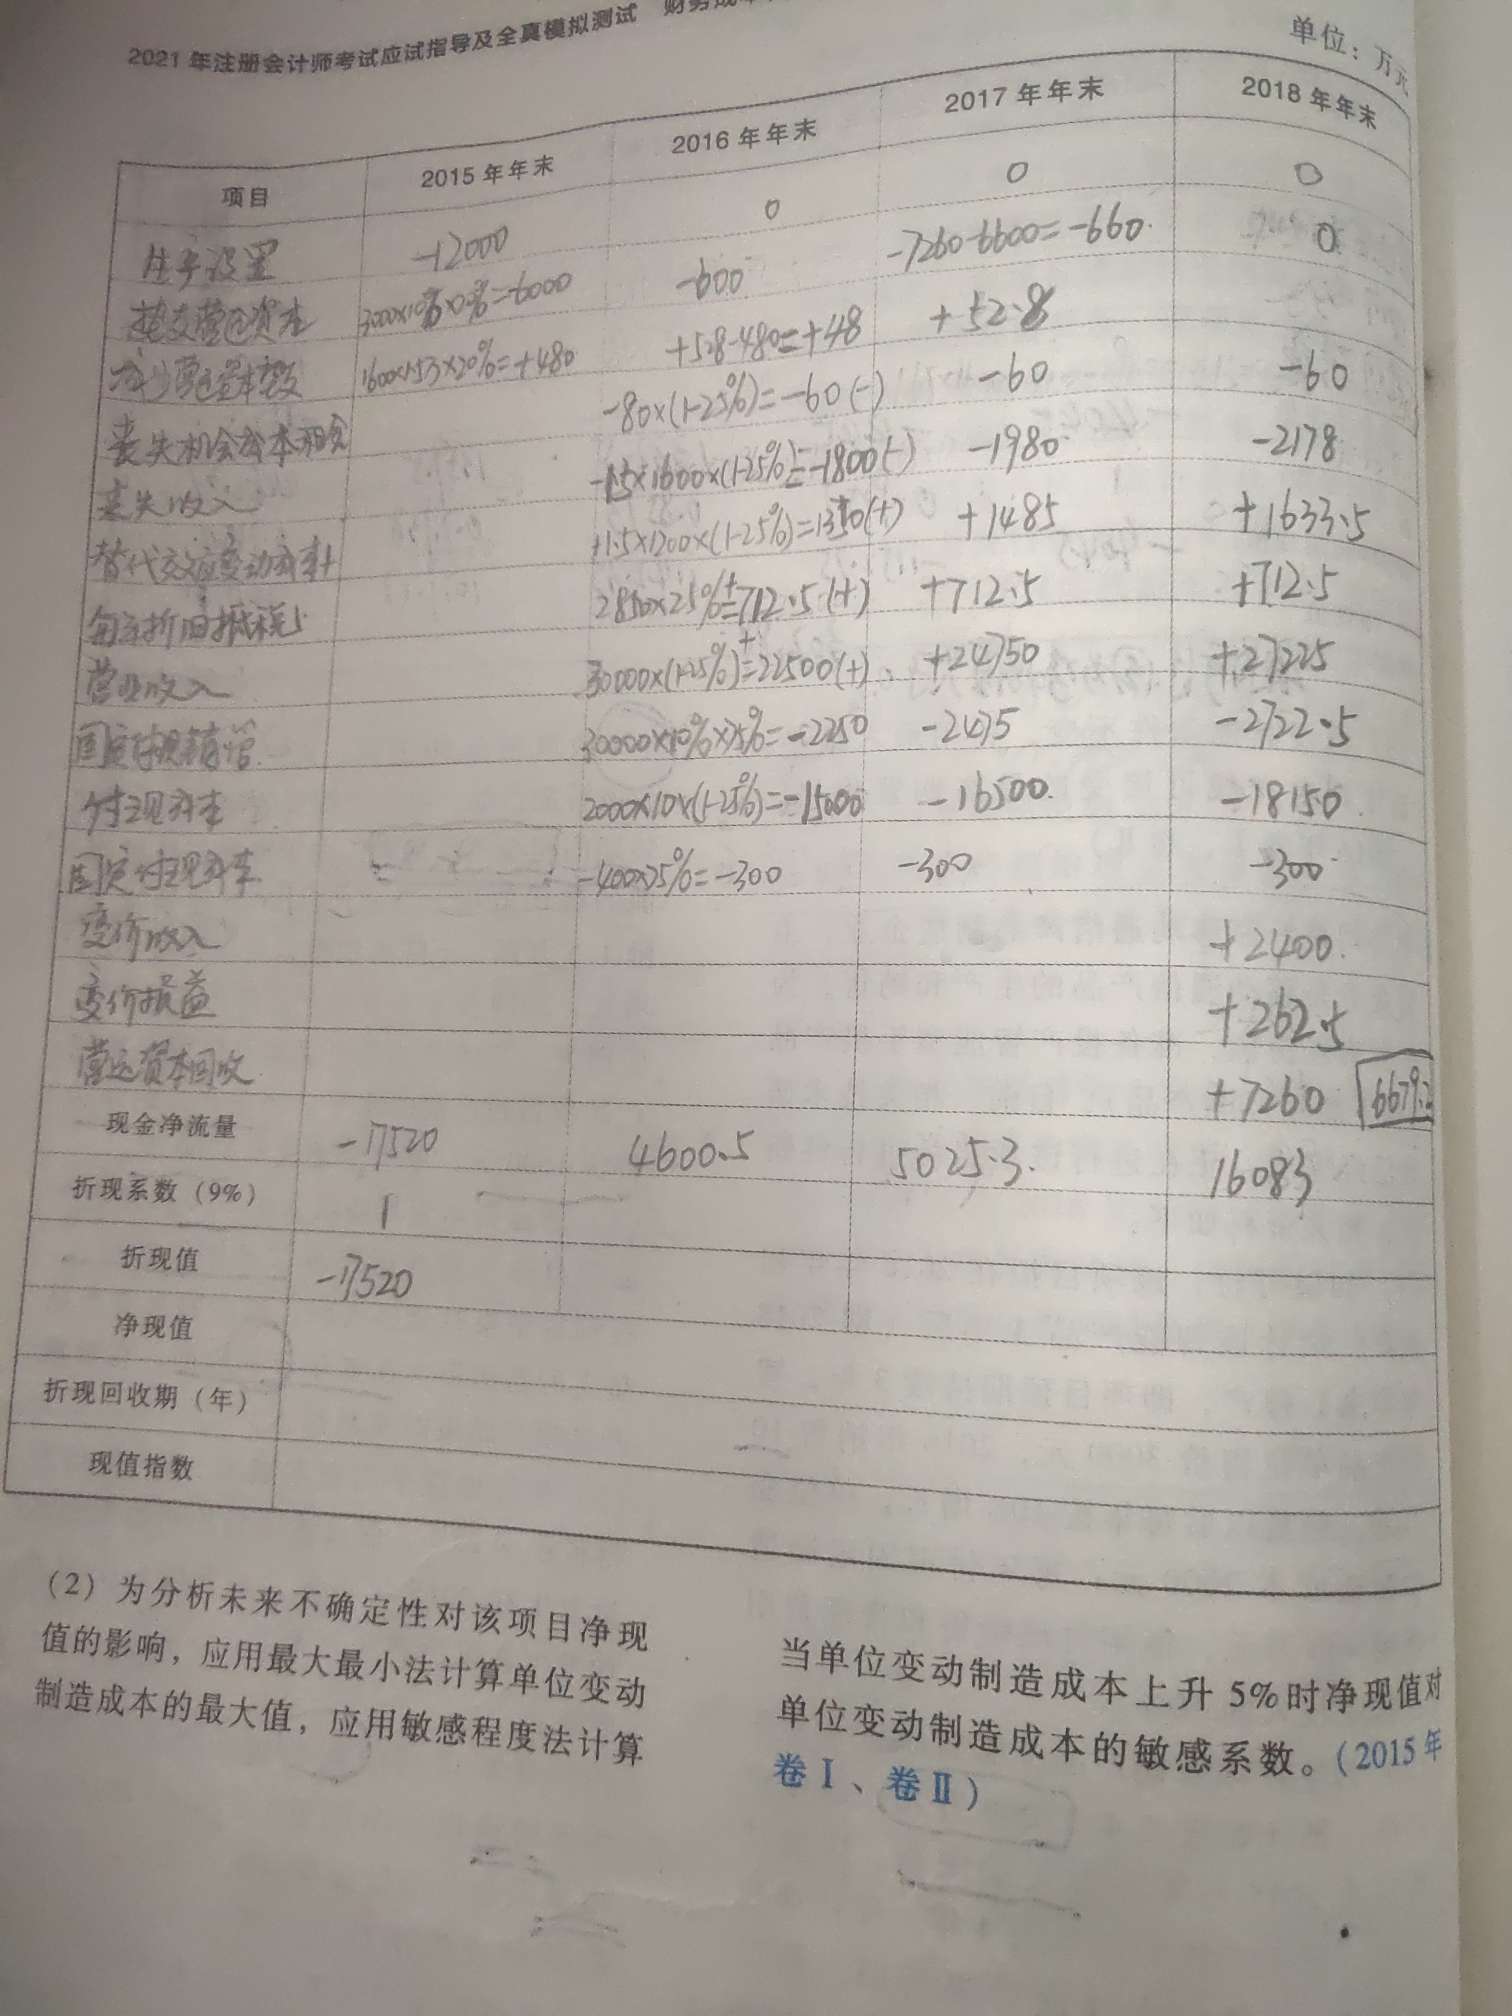 2021年注册会计师考试应试指导及全真模拟测试 财务成本
单位：万元
项目 2015年年末 2016年年末 2017年年末 2018年年末
生产设置 -12000 0 0 0
垫支营运资本 3000×10×20%=-6000 -600 -7260-6600=-660 0
减少营运资本垫支 1600×1.5×20%=+480 +528-480=+48 +52.8
丧失机会成本租金 -80×(1-25%)=-60(-) -60 -60
丧失收入 -1.5×1600×(1-25%)=-1800(-) -1980 -2178
替代效应变动成本 +1.5×1200×(1-25%)=1350(+) +1485 +1633.5
每年折旧抵税 2850×25%=712.5(+) +712.5 +712.5
营业收入 30000×(1-25%)=22500(+) +24750 +27225
固定付现销管 30000×10%×75%=-2250 -2475 -2722.5
付现成本 2000×10×(1-25%)=-15000 -16500 -18150
固定付现成本 -400×75%=-300 -300 -300
变价收入 +2400
变价损益 +262.5
营运资本回收 +7260
现金净流量 -17520 4600.5 5025.3 16083
折现系数（9%） 1
折现值 -17520
净现值
折现回收期（年）
现值指数
（2）为分析未来不确定性对该项目净现
值的影响，应用最大最小法计算单位变动
制造成本的最大值，应用敏感程度法计算
当单位变动制造成本上升5%时净现值对
单位变动制造成本的敏感系数。（2015年
卷Ⅰ、卷Ⅱ）